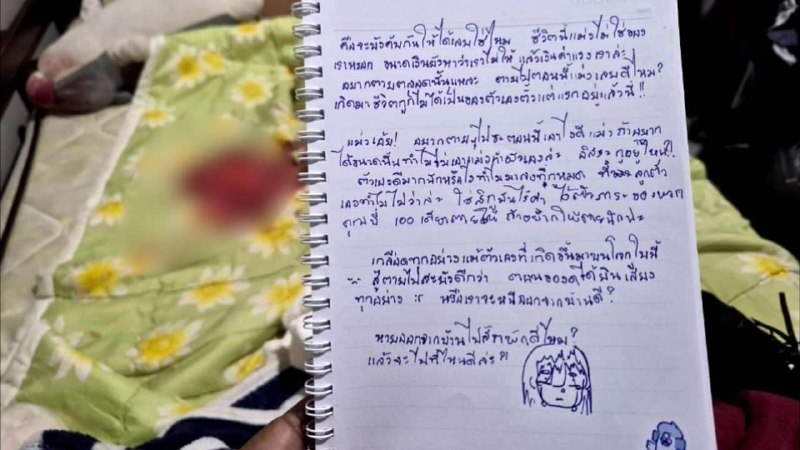 คือจะบังคับกันให้ได้เลยใช่ไหม ชีวิตนี้แม่งไม่ใช่ของ
เราหรอก ขนาดเงินผัวหาว่าเราไม่ให้ แล้วเงินค่าแรงเราล่ะ
อยากตายตลอดนั้นแหละ ตายไปตอนนี้แม่งเลยดีไหม?
เกิดมาชีวิตกูก็ไม่ได้เป็นของตัวเองตั้งแต่แรกอยู่แล้วนี่!!
แม่งเอ้ย! อยากตายๆไปซะตอนนี้เลา ไอดีแม่ง ถ้าอยาก
ได้ขนาดนั้นทำไมไม่ แม่งทำตัวเองล่ะ อิสระกูอยู่ไหน?!
ตัวเองดีมากนักหรือไงทำไมมาลงที่กูหมด ลูกตัว
เองทำไมไม่ว่าล่ะ ใช่สิกูมันไร้ค่า ภาระของพวก
คุณนี่ ตายนักน่ะ
เกลียดทุกอย่างแม้ตัวเองที่เกิดขึ้นมาบนโลกใบนี้
สู้ตายไปซะยังดีกว่า ได้ยินเสียง
ทุกอย่าง หรือเราจะหนีออกจากบ้านดี?
หายออกจากบ้านไปสักพักดีไหม?
แล้วจะไปที่ไหนดีล่ะ?!